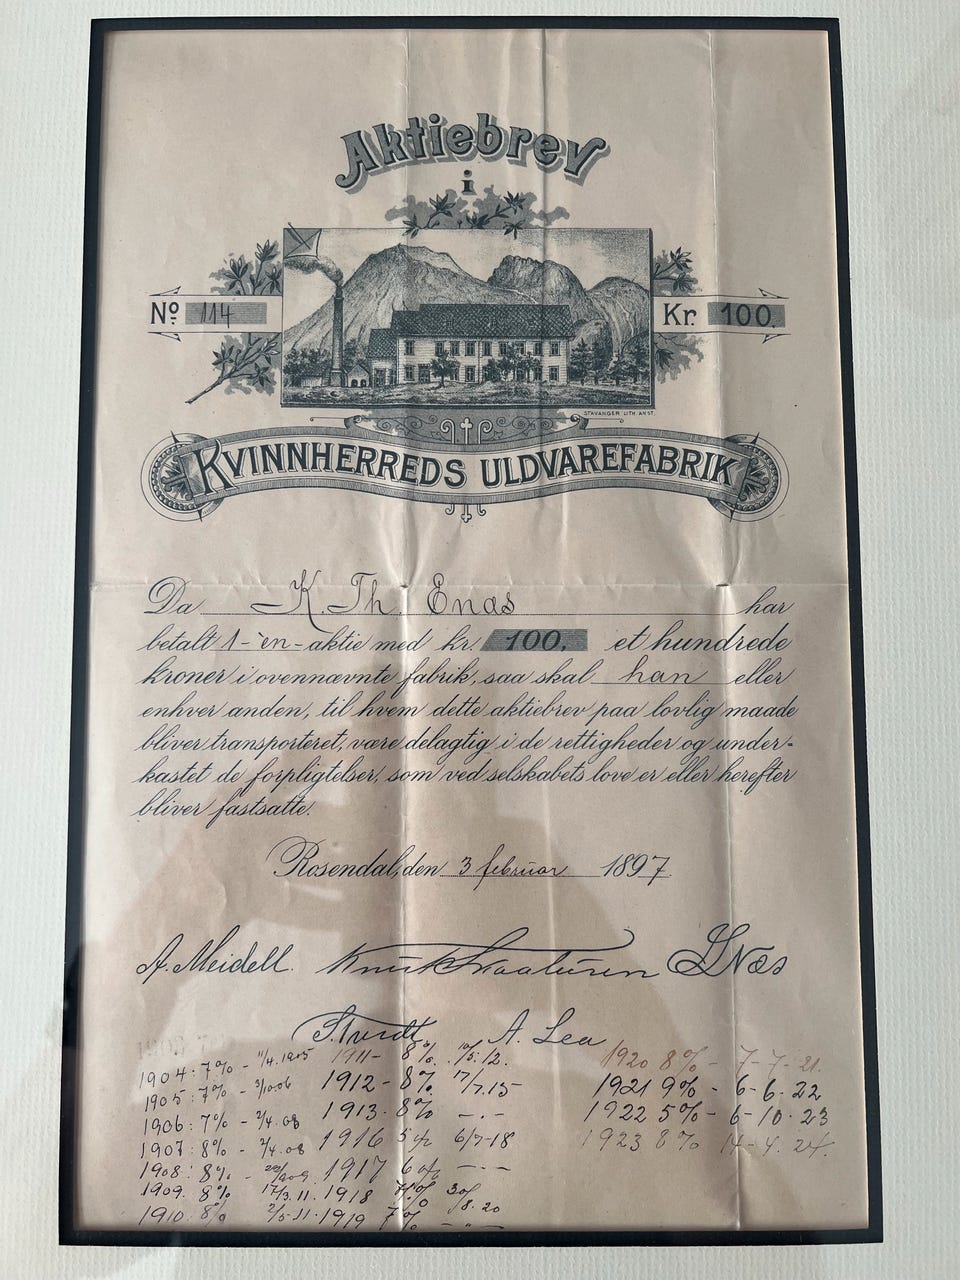 Aktiebrev
i
No. 114
Kr. 100.
STAVANGER LITH. ANST.
KVINNHERREDS ULDVAREFABRIK
Da K. Th. Enas har
betalt 1-èn-aktie med kr. 100, et hundrede
kroner i ovennævnte fabrik, saa skal han eller
enhver anden, til hvem dette aktiebrev paa lovlig maade
bliver transporteret, være delagtig i de rettigheder og under-
kastet de forpligtelser, som ved selskabets love er eller herefter
bliver fastsatte.
Rosendal, den 3 februar 1897.
A. Meidell. Knut Næs
A. Lea
1904: 7% - 11/4.1905
1905: 7% -
1906: 7% - 2/4.08
1907: 8% - 2/4.08
1908: 8% -
1909. 8% 17/3.11.
1910: 8% 2/5-11.
1911- 8% 12.
1912- 8% 17/7.15-
1913- 8% -.-
1916 5% 6/7-18
1917 6% -.-
1918 7% 30/8.20
1919 7% - " -
1920 8% - 7-7-21.
1921 9% - 6-6-22
1922 5% - 6-10-23
1923 8% 14-4. 24.